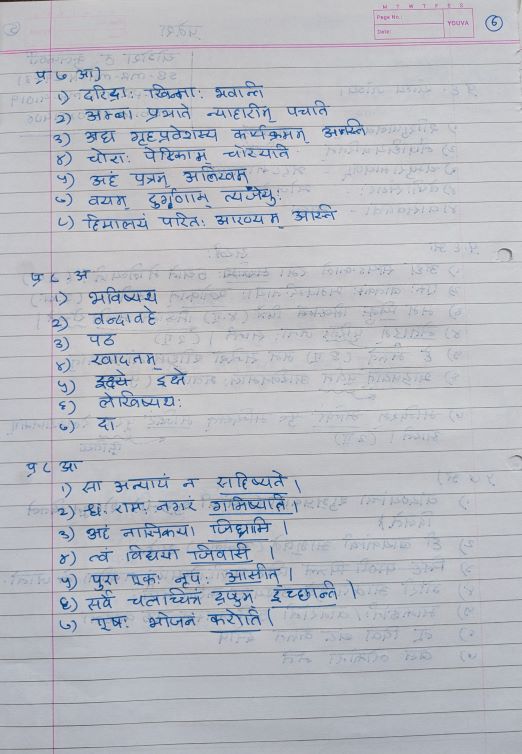 M T W T F S S
Page No.:
Date:
YOUVA
6
प्र ७ आ]
१) दरिद्राः खिन्नाः भवान्ति
२) अम्बा प्रभाते न्याहारीम् पचाति
३) अद्य गृहप्रवेशस्य कार्यक्रमम् अस्ति
४) चोराः पेटिकाम् चोरयाति
५) अहं पत्रम् अलिखम्
७) वयम् दुर्गुणान् त्यजेयुः
८) हिमालयं परितः आरण्यम् आस्ति
प्र ८ अ
१) भविष्यथ
२) वन्दावहे
३) पठ
४) खादतम्
५) इक्षे
६) लेखिष्यथः
७) दा
प्र ८ आ
१) सा अन्यायं न सहिष्यते ।
२) रामः नगरं गमिष्याति ।
३) अहं नासिकया जिघ्रामि ।
४) त्वं विद्यया जिवासी ।
५) पुरा एक नृपः आसीत् ।
६) सर्वे चलाच्चित्र द्रष्टुम् इच्छान्ति ।
७) एषः भोजनं करोति ।